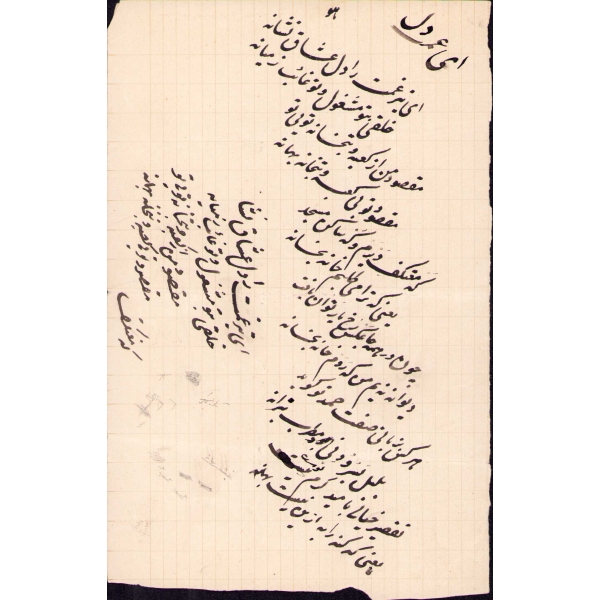 هو
ای غم دل
ای تیر غمت را دل عشاق نشانه
خلقی بتو مشغول و تو غائب ز میانه
مقصود من از کعبه و بتخانه تویی تو
مقصود تویی کعبه و بتخانه بهانه
گه معتکف دیرم و گه ساکن مسجد
یعنی که ترا می طلبم خانه بخانه
چون در همه جا عکس رخ یار توان یافت
دیوانه نیم من که روم خانه بخانه
هر کس بزبانی صفت حمد تو گوید
بلبل بغزلخوانی و مطرب بترانه
تقصیر خیالی بامید کرم تست
یعنی که گنه را به ازین نیست بهانه
ای تیر غمت را دل عشاق نشا
خلقی بتو مشغول و تو غائب ز میانه
مقصود من از کعبه و بتخانه تویی تو
مقصود تویی کعبه و بتخانه بهانه
گه معتکف